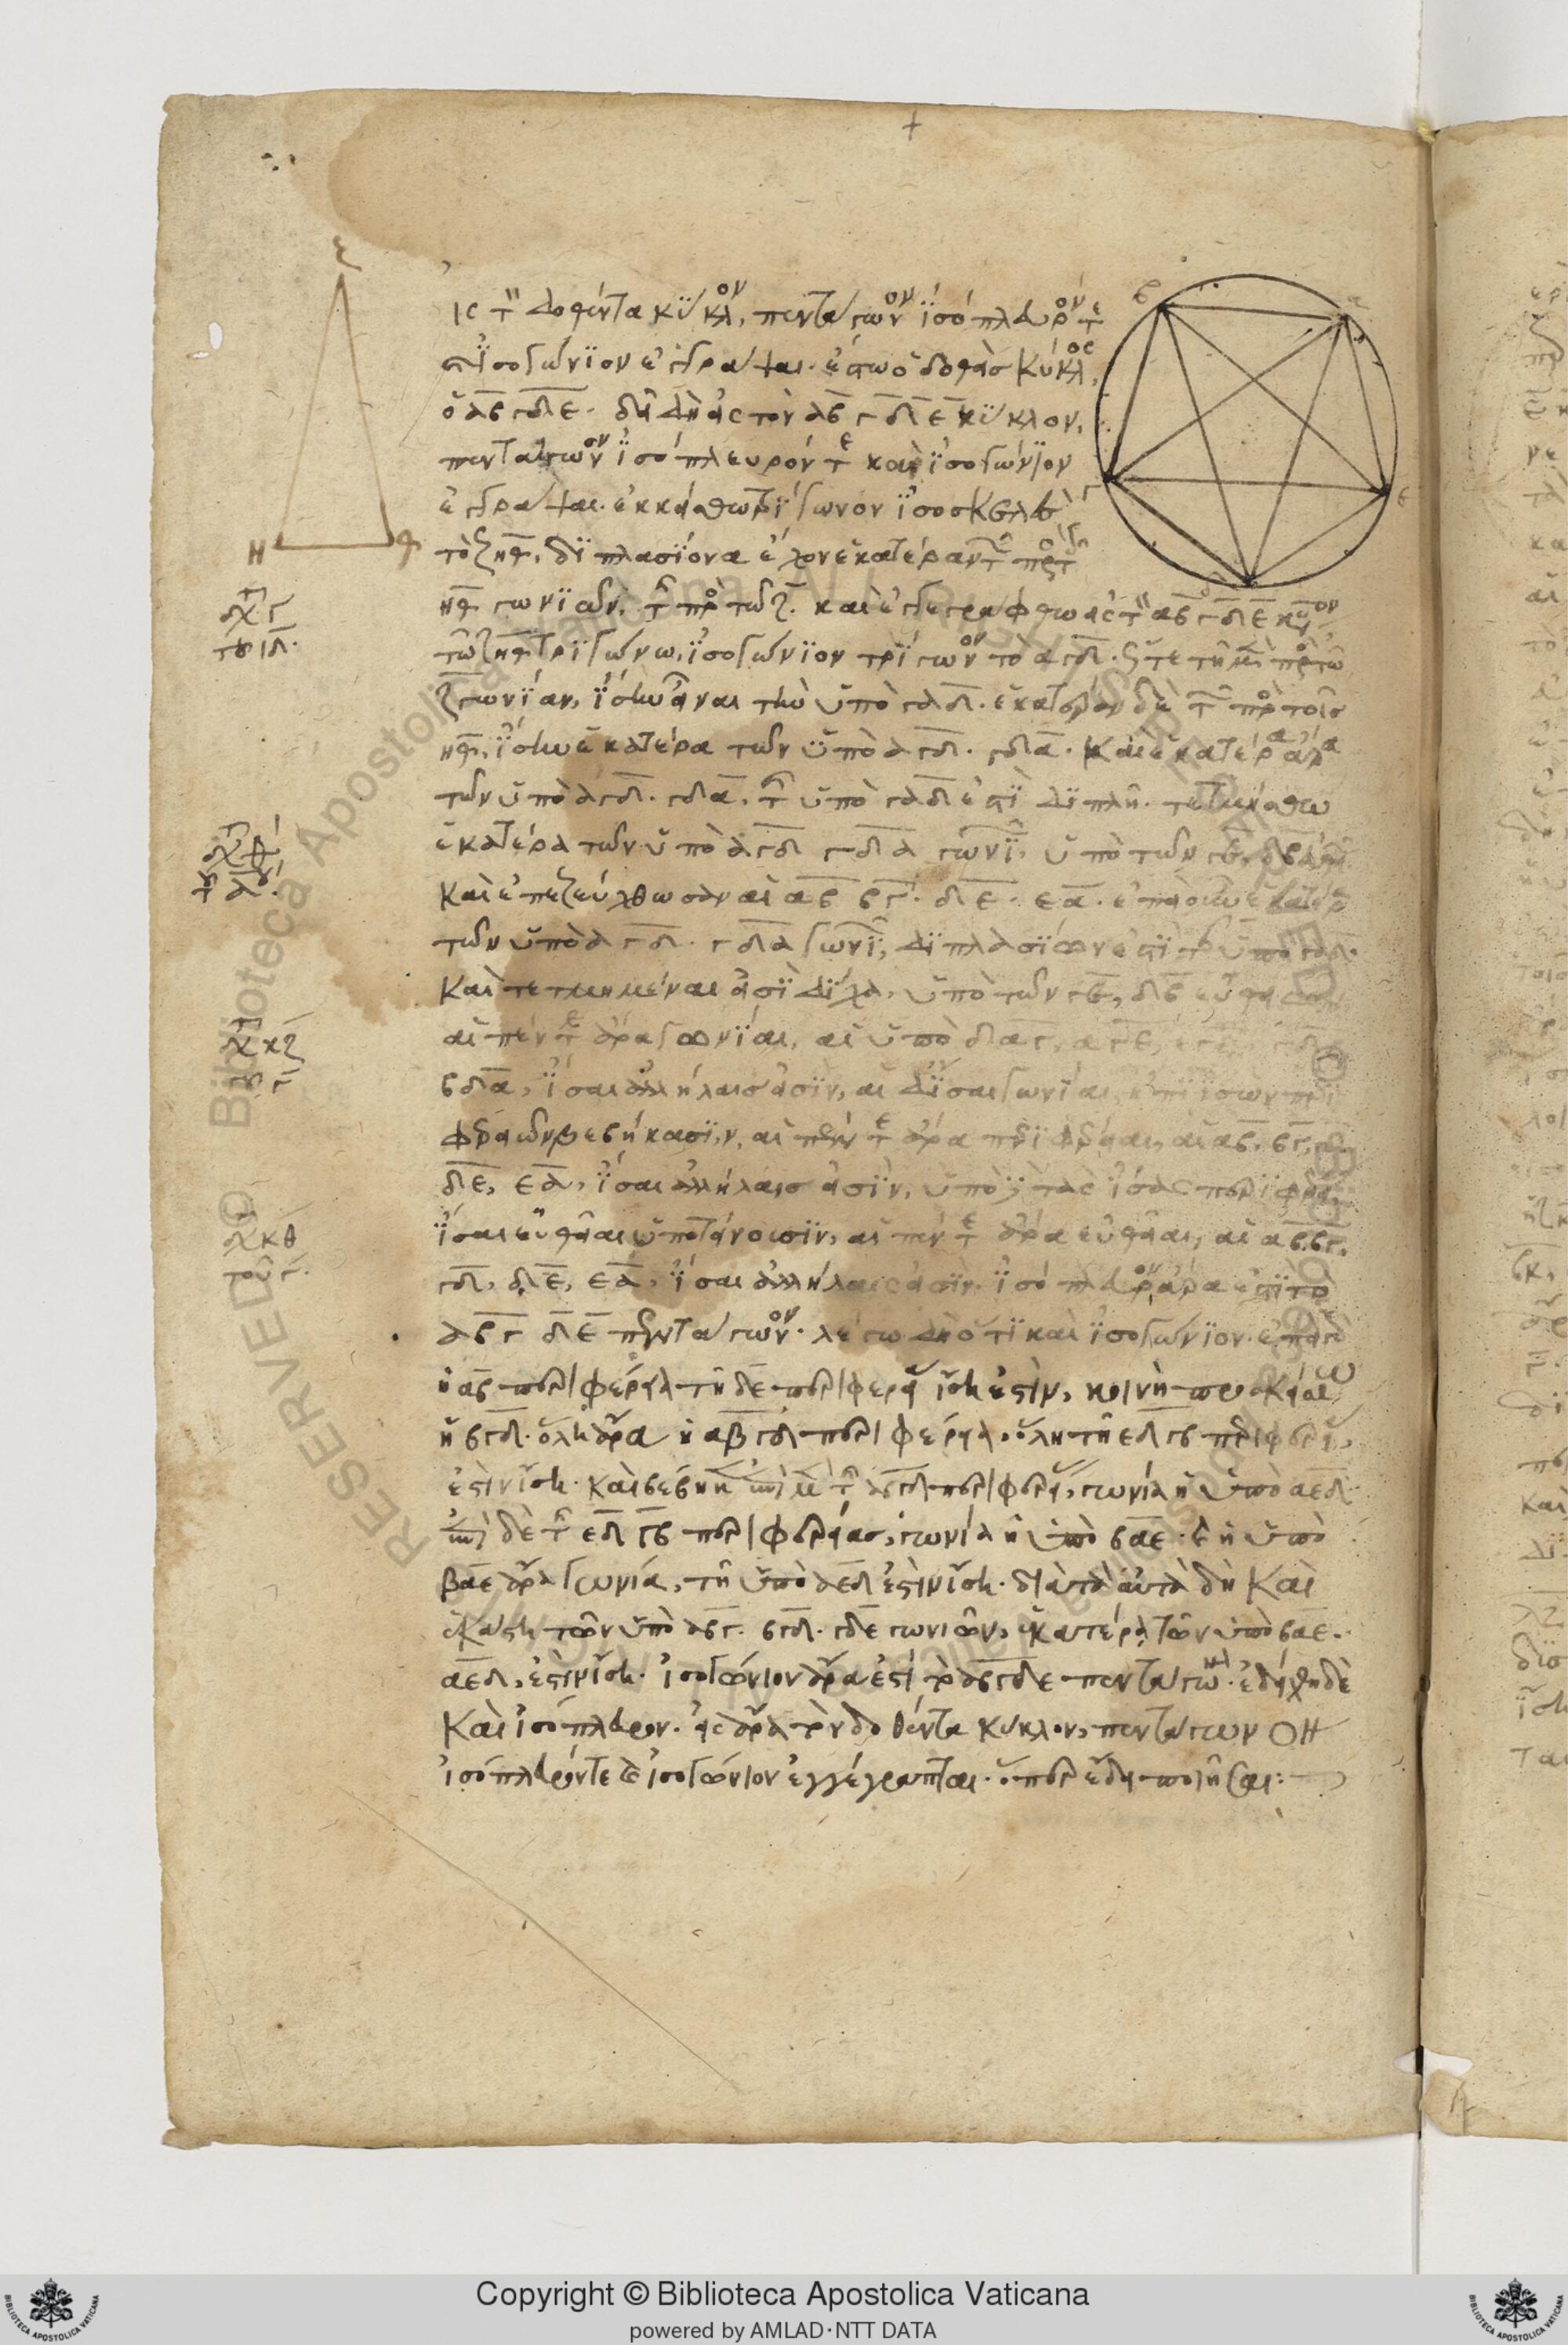 ις τ δοθέντα κύκλον, πενταγωνον ϊσόπλευρόν τε
ϊσογώνϊον ἐγγράψαι· ἔστω ὁ δοθεὶσ κύκλος,
ὁ αβγδε· δεῖ δὴ εἰς τὸν αβγδε κύκλον,
πενταγωνον ϊσόπλευρόν τε καὶ ϊσογώνϊον
ἐγγραψαι· ἐκκείσθω τρίγωνον ϊσοσκελὲσ
τὸ ζηθ, δϊπλασϊονα ἔχον ἑκατέραν τῶν πρὸς τοῖς
ηθ γωνϊῶν, τῆς πρὸς τῶ ζ· καὶ ἐγγεγραφθω εἰς τ αβγδε κύκλον
τῶ ζηθ τριγώνω, ϊσογώνϊον τρίγωνον τὸ αγδ· ὥστε τῆ μὲν πρὸς τῶ
ζ γωνίαν, ϊσην εἶναι τὴν ὑπὸ γαδ· ἑκατέραν δὲ τῶν πρὸς τοῖσ
ηθ, ϊσην ἑκατέρα τῶν ὑπὸ αγδ· γδα· καὶ ἑκατέρα ἄρα
τῶν ὑπὸ αγδ· γδα, τῆς ὑπὸ γαδ ἐστϊ δϊπλῆ· τετμήσθω
ἑκατέρα τῶν ὑπὸ αγδ γδα γωνϊῶν, ὑπὸ τῶν γε, δβ
καὶ ἐπεζεύχθωσαν αἱ αβ βγ· δε· εα· ἐπεὶ οὖν ἑκατέρα
τῶν ὑπὸ αγδ· γδα γωνϊῶν, δϊπλασϊων ἐστϊ τῆς ὑπὸ γαδ·
καὶ τετμημέναι εἰσϊ δϊχα, ὑπὸ τῶν γε, δβ εὐθειῶν
αἱ πέντε ἄρα γωνϊαι, αἱ ὑπὸ δαγ, αγε, εγδ, γδβ
βδα, ϊσαι ἀλλήλαισ εἰσϊν, αἱ δὲ ϊσαι γωνϊαι, ἐπϊ ϊσων περϊ
φερειῶν βεβήκασϊν, αἱ πέντε ἄρα περϊφέρειαι, αἱ αβ, βγ, γδ
δε, εα, ϊσαι ἀλλήλαισ εἰσϊν, ὑπὸ δὲ τὰς ϊσας περϊφερείας
ϊσαι εὐθεῖαι ὑποτείνουσϊν, αἱ πέντε ἄρα εὐθεῖαι, αἱ αβ, βγ,
γδ, δε, εα, ϊσαι ἀλλήλαις εἰσϊν· ϊσόπλευρον ἄρα ἐστϊ τὸ
αβγδε πενταγωνον· λέγω δὴ ὅτϊ καὶ ϊσογώνϊον· ἐπεὶ
ἡ αβ περιφέρεια τῆ δε περιφερεία ἴση ἐστὶν, κοινὴ προσκείσθω
ἡ βγδ· ὅλη ἄρα ἡ αβγδ περιφέρεια, ὅλη τῆ εδγβ περιφερεία,
ἐστὶν ἴση· καὶ βέβηκεν ἐπὶ μὲν τῆς αβγδ περιφερείας, γωνία ἡ ὑπὸ αεδ
ἐπὶ δὲ τῆς εδγβ περιφερείασ, γωνία ἡ ὑπὸ βαε· καὶ ἡ ὑπὸ
βαε ἄρα γωνία, τῆ ὑπὸ αεδ ἐστὶν ἴση· διὰ τὰ αὐτὰ δὴ καὶ
ἑκάστη τῶν ὑπὸ αβγ· βγδ· γδε γωνιῶν, ἑκατέρα τῶν ὑπὸ βαε·
αεδ, ἐστὶν ἴση· ἰσογώνιον ἄρα ἐστὶ τὸ αβγδε πενταγωνον· ἐδείχθη δὲ
καὶ ἰσόπλευρον· εἰς ἄρα τὸν δοθέντα κύκλον, πενταγωνον
ἰσόπλευρόν τε καὶ ἰσογώνιον ἐγγέγραπται· ὅπερ ἔδει ποιῆσαι:
Copyright © Biblioteca Apostolica Vaticana
powered by AMLAD·NTT DATA